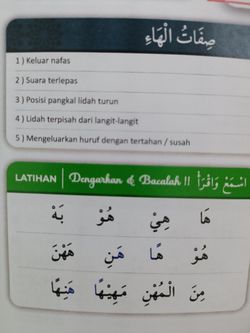 صِفَاتُ الْهَاءِ
1 ) Keluar nafas
2 ) Suara terlepas
3 ) Posisi pangkal lidah turun
4 ) Lidah terpisah dari langit-langit
5 ) Mengeluarkan huruf dengan tertahan / susah
LATIHAN | Dengarkan & Bacalah !! اسْمَعْ وَاقْرَأْ
هَا هِيْ هُوْ بَهْ
هُوْ هَا هَـنِ هَهْنَ
مِنَ الْمُهْنِ مَهِيْهَا هَنِهَا